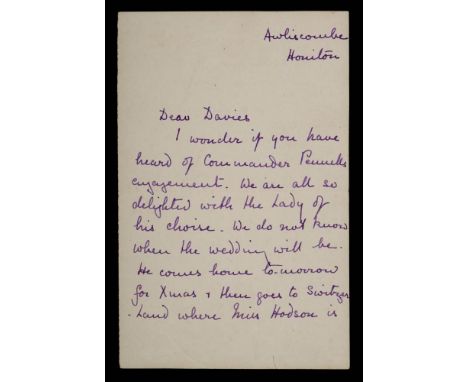 Awliscombe
Honiton
Dear Davies
I wonder if you have
heard of Commander Pennells
engagement. We are all so
delighted with the Lady of
his choise. We do not know
when the wedding will be.
He comes home to-morrow
for Xmas & then goes to Switzer
-Land where Miss Hodson is